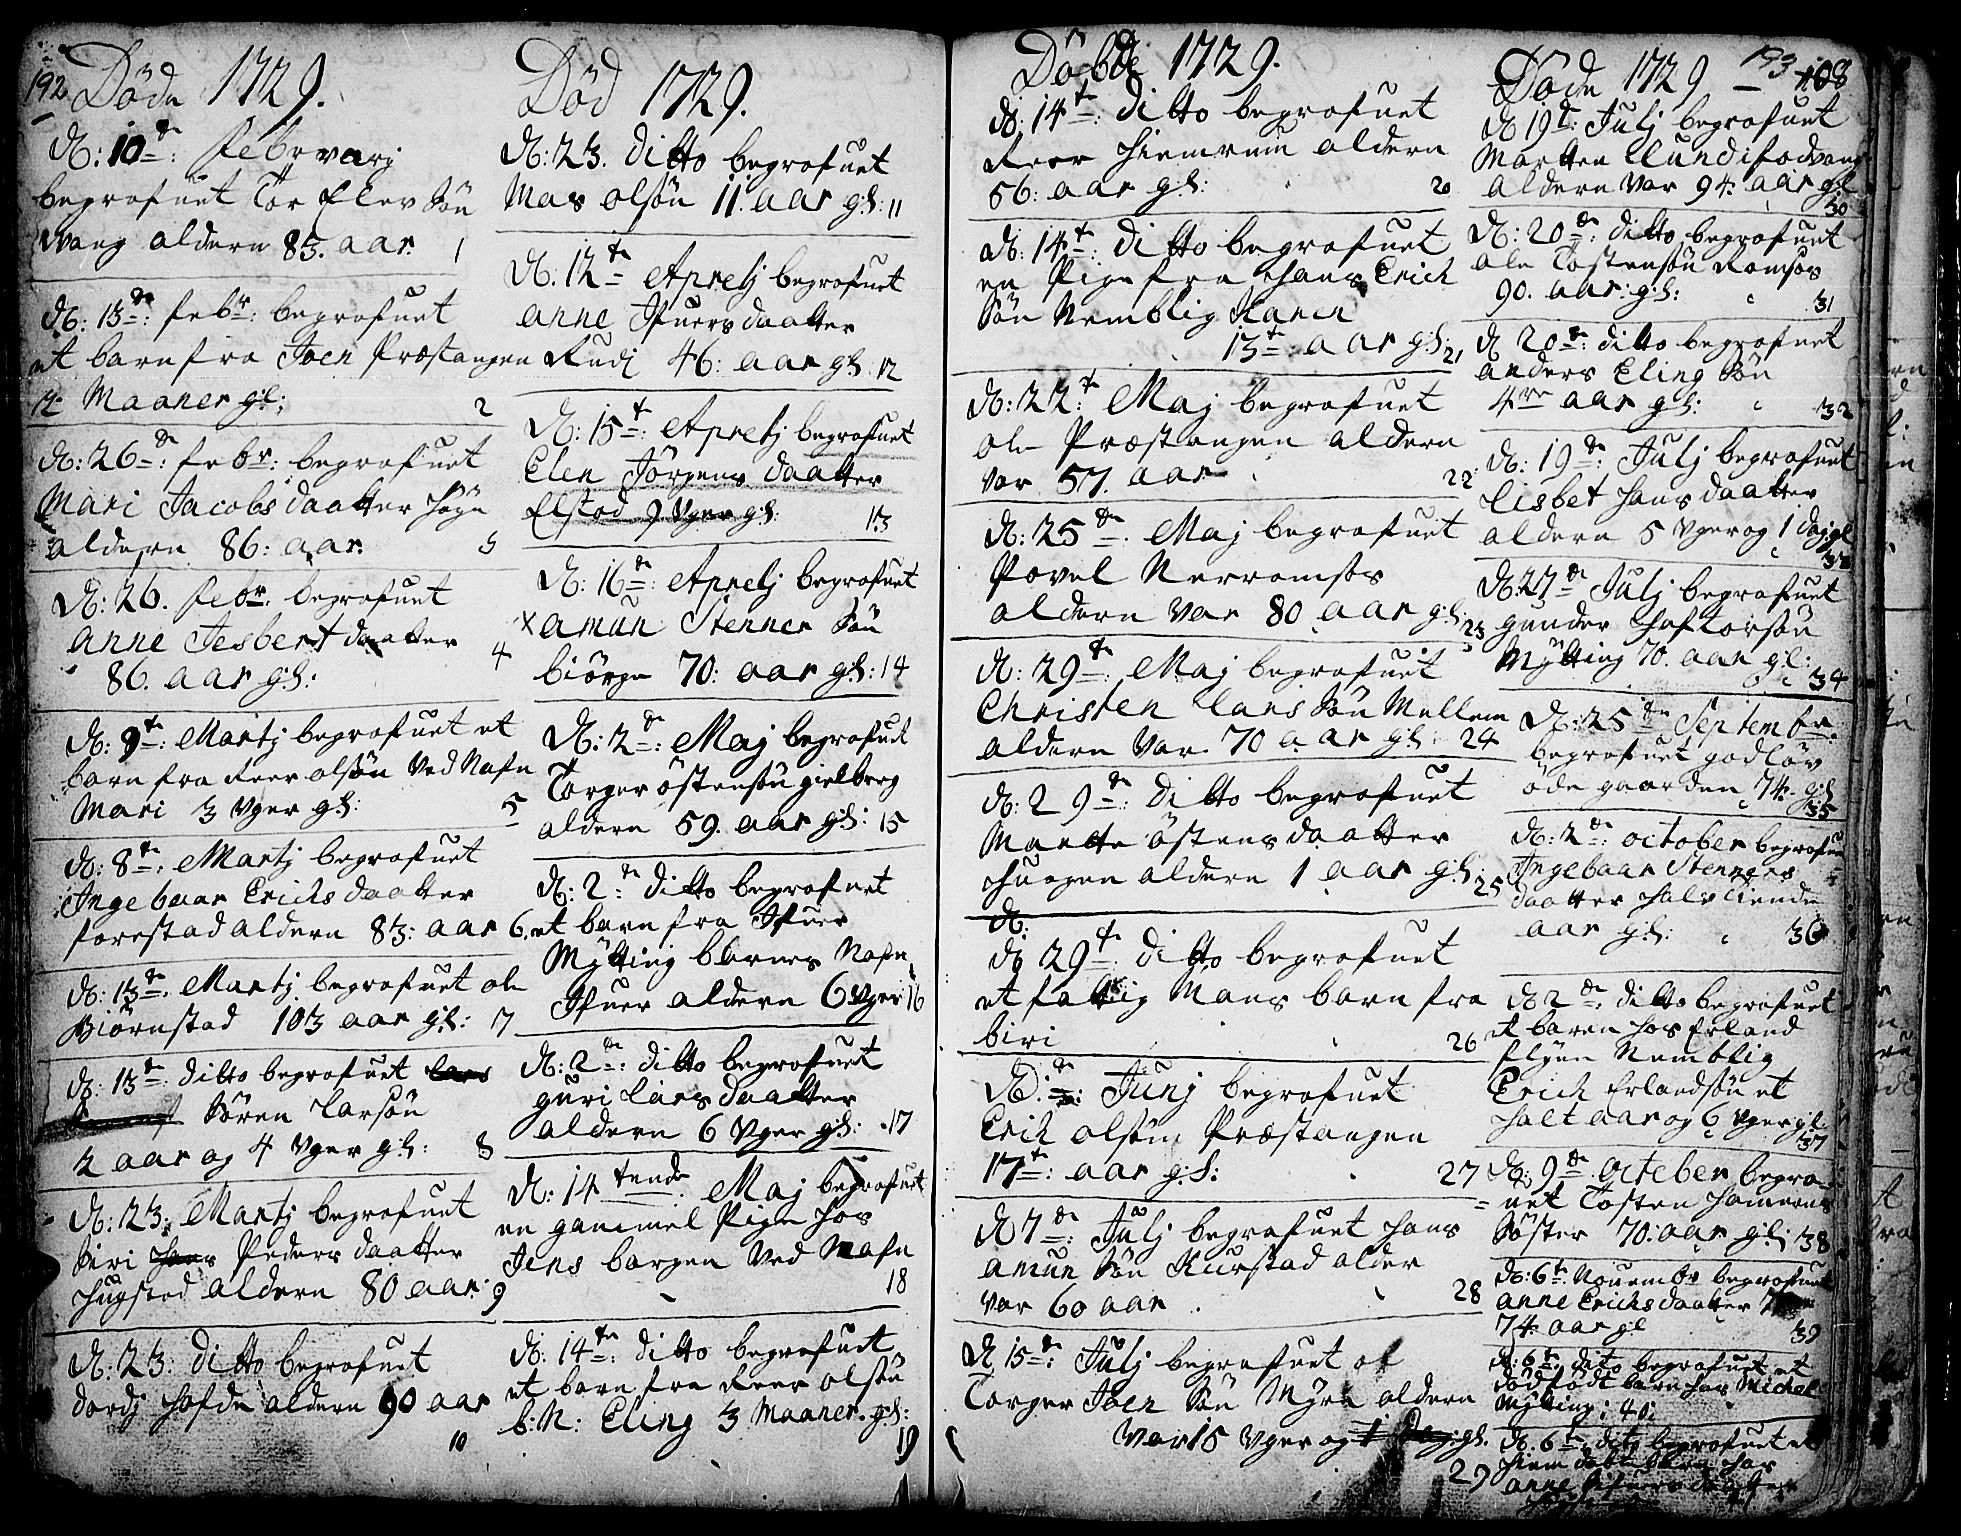 192
Döde 1729.
d: 10de: Februarj
begrafuet Tor Elev Sön
Vang aldern 83. aar. 1
d: 13de: febr: begrafuet
et barn fra Joen Præstangen
12 Maaner gl: 2
d: 26de: febr: begrafuet
Mari Jacobs daatter
aldern 86: aar. 3
d: 26. febr: begrafuet
anne Jesbert daatter
86. aar gl: 4
d: 9te: Martj begrafuet et
barn fra Peer olsön Ved Nafn
Mari 3 Vger gl: 5
d: 8te: Martj begrafuet
Ingebaar Erichs daatter
forestad aldern 83: aar 6.
d: 13de: Martj begrafuet ole
Biörnstad 103 aar gl: 7
d: 13de: ditto begrafuet
Sören Larsön
2 aar og 4 Vger gl: 8
d: 23: Martj begrafuet
Siri Peders daatter
hugstad aldern 80 aar: 9
d: 23: ditto begrafuet
dordj hafde aldern 90 aar
10
Död 1729.
d: 23. ditto begrafuet
Mas olsön 11. aar gl: 11
d: 12te Aprelj begrafuet
anne Ifuersdaatter
Rudj 46: aar gl: 12
d: 15te: Aprelj begrafuet
Elen Jörgens daatter
Elstad 9 Vger gl: 13
d: 16de: Aprelj begrafuet
x amun Stenner Sön
biörge 70: aar gl: 14
d: 2de: Maj begrafuet
Torger östensön gielberg
aldern 59. aar gl: 15
d: 2de: ditto begrafuet
et barn fra Ifuer
Mytting barnes Nafn
Ifuer aldern 6 Vger 16
d: 2de: ditto begrafuet
guri Lars daatter
aldern 6 Vger gl: 17
d: 14tende: Maj begrafuet
en gammel Pige hos
Jens borgen Ved Nafn
18
d: 14te: ditto begrafuet
et barn fra Peer olsön
b: N: Eling 3 Maaner. gl:
19
Döde 1729.
d: 14te: ditto begrafuet
Peer Hiemrum aldern
56: aar gl: 20
d: 14te: ditto begrafuet
en Pige fra Hans Erich
Sön Nemblig Karen
13te: aar gl: 21
d: 22te: Maj begrafuet
ole Præstangen aldern
var 57. aar 22
d: 25de: Maj begrafuet
Povel Nerramsos
aldern var 80 aar gl: 23
d: 29de: Maj begrafuet
Christen Lars Sön Mellem
aldern Var 70 aar gl: 24
d: 29de: ditto begrafuet
Marette östens daatter
aldern 1 aar gl: 25
d:
d: 29te: ditto begrafuet
et fattig Mans barn fra
biri 26
d: de: Junj begrafuet
Erich olsön Præstangen
17te: aar gl: 27
d 7de: Julj begrafuet Hans
amun Sön Kurstad alder
var 60 aar. 28
d: 15de: Julj begrafuet of
Torger Joen Sön Myre aldern
Var 15 Vger og 1 Dag. gl.
29
Döde 1729 193 108
d: 19de: Julj begrafuet
Marten Sundifodvang
aldern var 94. aar gl
30
d: 20de: ditto begrafuet
ole Tostensön Ramsos
90. aar: gl: 31
d 20de: ditto begrafuet
anders Eling Sön
4re aar gl: 32
d: 19de: Julj begrafuet
Lisbet Hans daatter
aldern 5 Vger og 1 dag: gl
33
d: 27de: Julj begrafuet
gunder Haftorsön
Mytting 70. aar gl: 34
d: 25de: Septembr
begrafuet godlöv
öde gaarden 74. gl
35
d: 2de: october begrafuet
Ingebaar Stenners
daatter halvtiende
aar gl: 36
d: 2de: ditto begrafuet
et baren hos Erland
flÿen Nemblig
Erich Erlandsön et
halt aar og 6 Vger gl
37
d: 9de october begra-
= uet Tosten
Söster 70. aar gl: 38
d: 6te: Nouembr begrafuet
anne Erichsdaatter
74. aar gl 39
d: 6te: dito begrafuet et
dödfödt barn hos Michel
Mytting: 40
d. 6te: dito begrafuet et
hiem döbt barn hos
anne Ifuers daatter